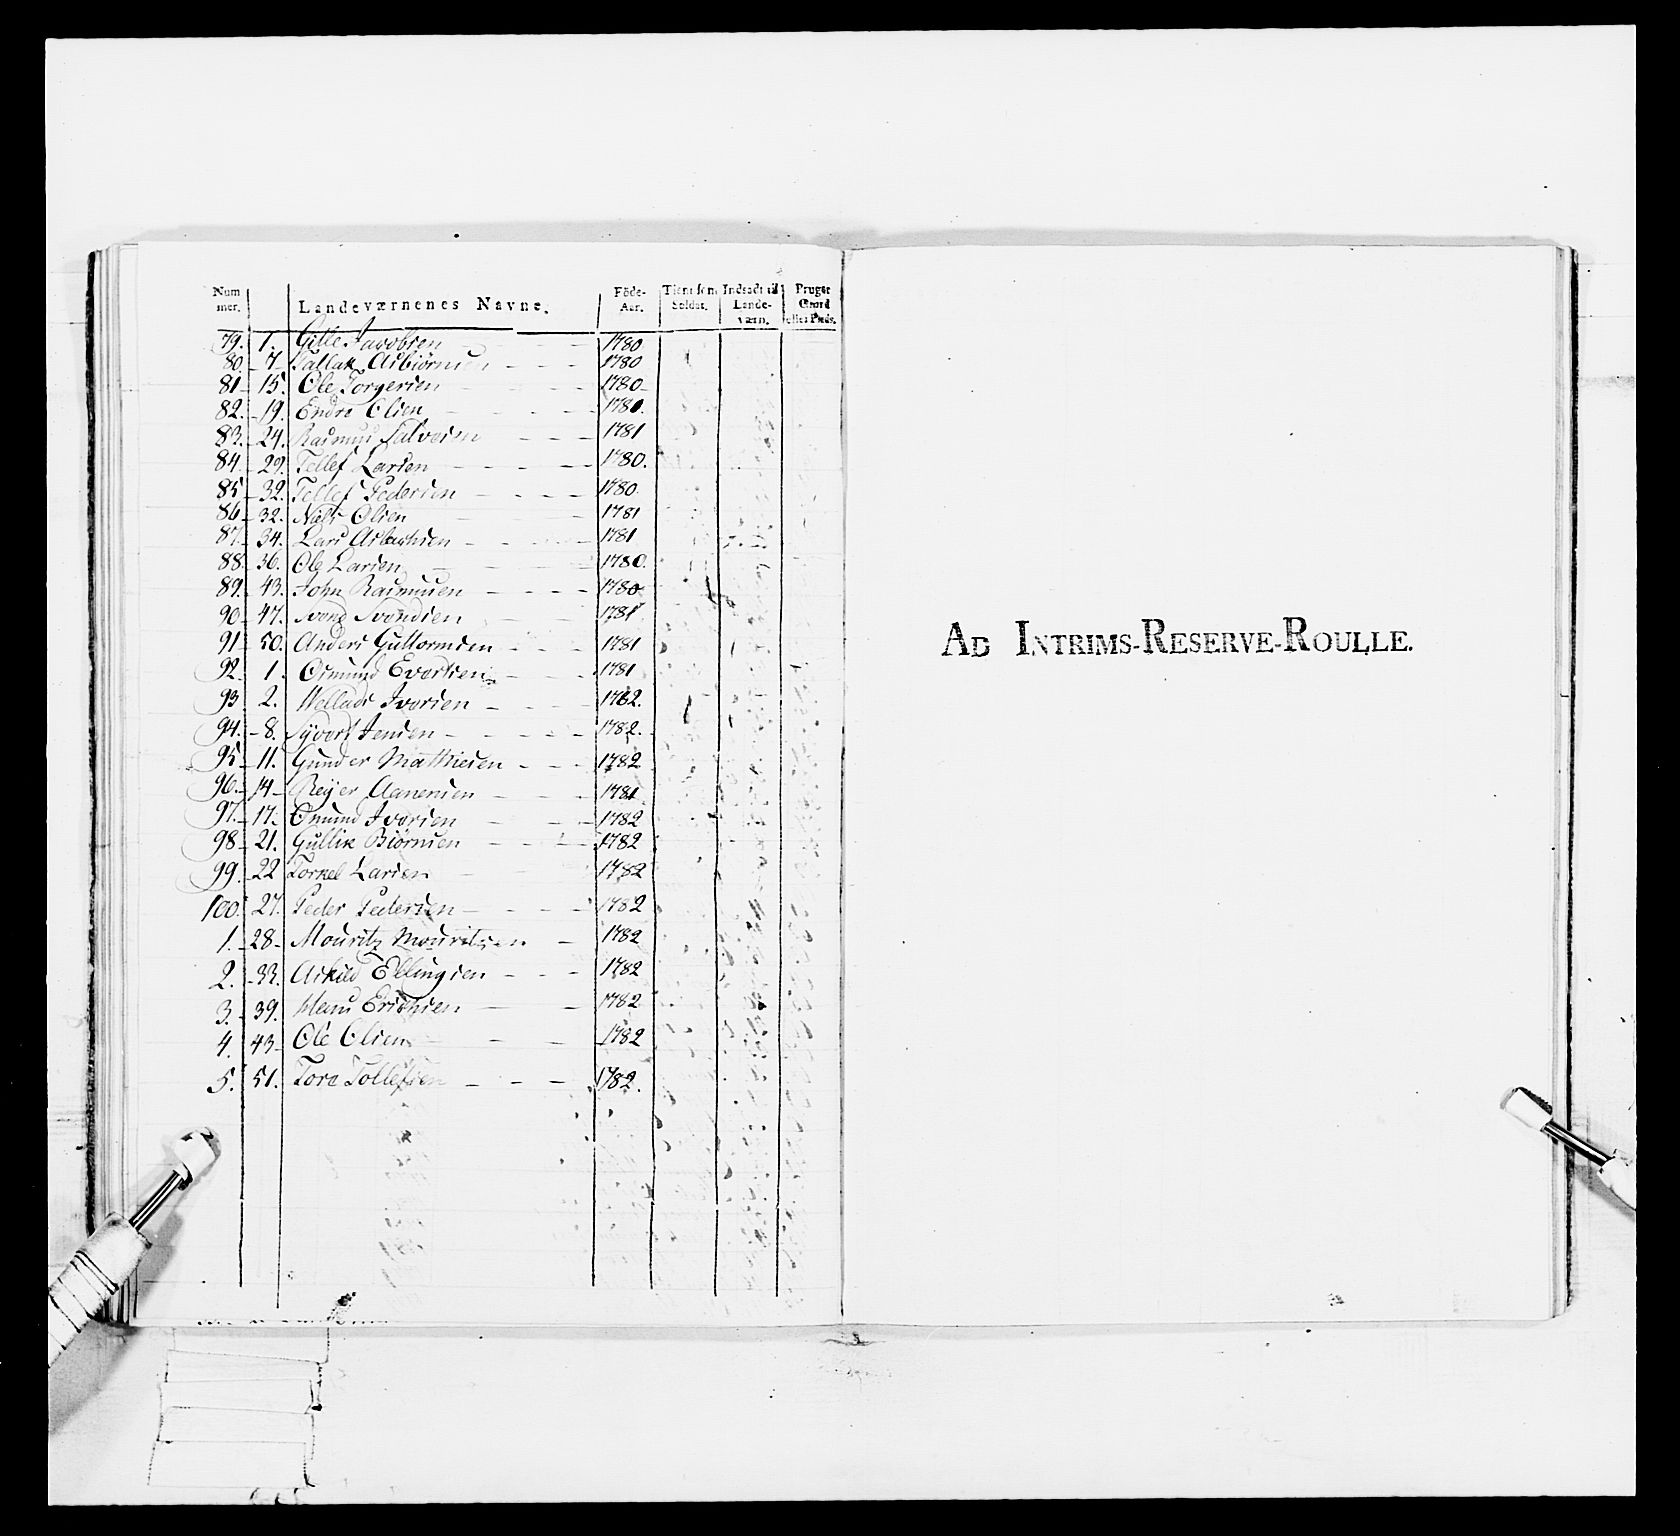 Num mer. Landeværnenes Navne. Föde-Aar. Tient som Soldat. Indsadt til Lande-værn. Bruger Gaard eller Plads.
79. 1. Gitle Jacobsen 1780
80 7 Tallak Asbiørnsen 1780
81 15. Ole Torgersen 1780
82. 19. Endre Olsen 1780.
83. 24. Rasmus Salvesen 1781
84. 29. Tellef Larsen 1780.
85 32. Tellef Pedersen 1780
86 32. Niels Olsen 1781
87. 34. Lars 1781
88. 36. Ole Larsen 1780.
89. 43. John Rasmusen 1780
90 47. Svend Svendsen 1781
91 50. Anders Guttormsen 1781
92. 1. Osmund Evertsen 1781
93 2. Iversen 1782.
94. 8. Syvert Jensen 1782.
95 11. Gunder Matthiesen 1782
96. 14 Reyer Aanensen 1781
97. 17. Osmund Iversen 1782
98 21. Gullik Biørnsen 1782
99. 22 Torkel Larsen 1782
100. 27. Peder Pedersen 1782
1. 28 Mouritz Mouritzen 1782
2. 33. Askild Ellingsen 1782
3. 39. Hans Erichsen 1782
4. 43 Ole Olsen 1782
5. 51. Tore Tollefsen 1782.
AD INTRIMS-RESERVE-ROULLE.